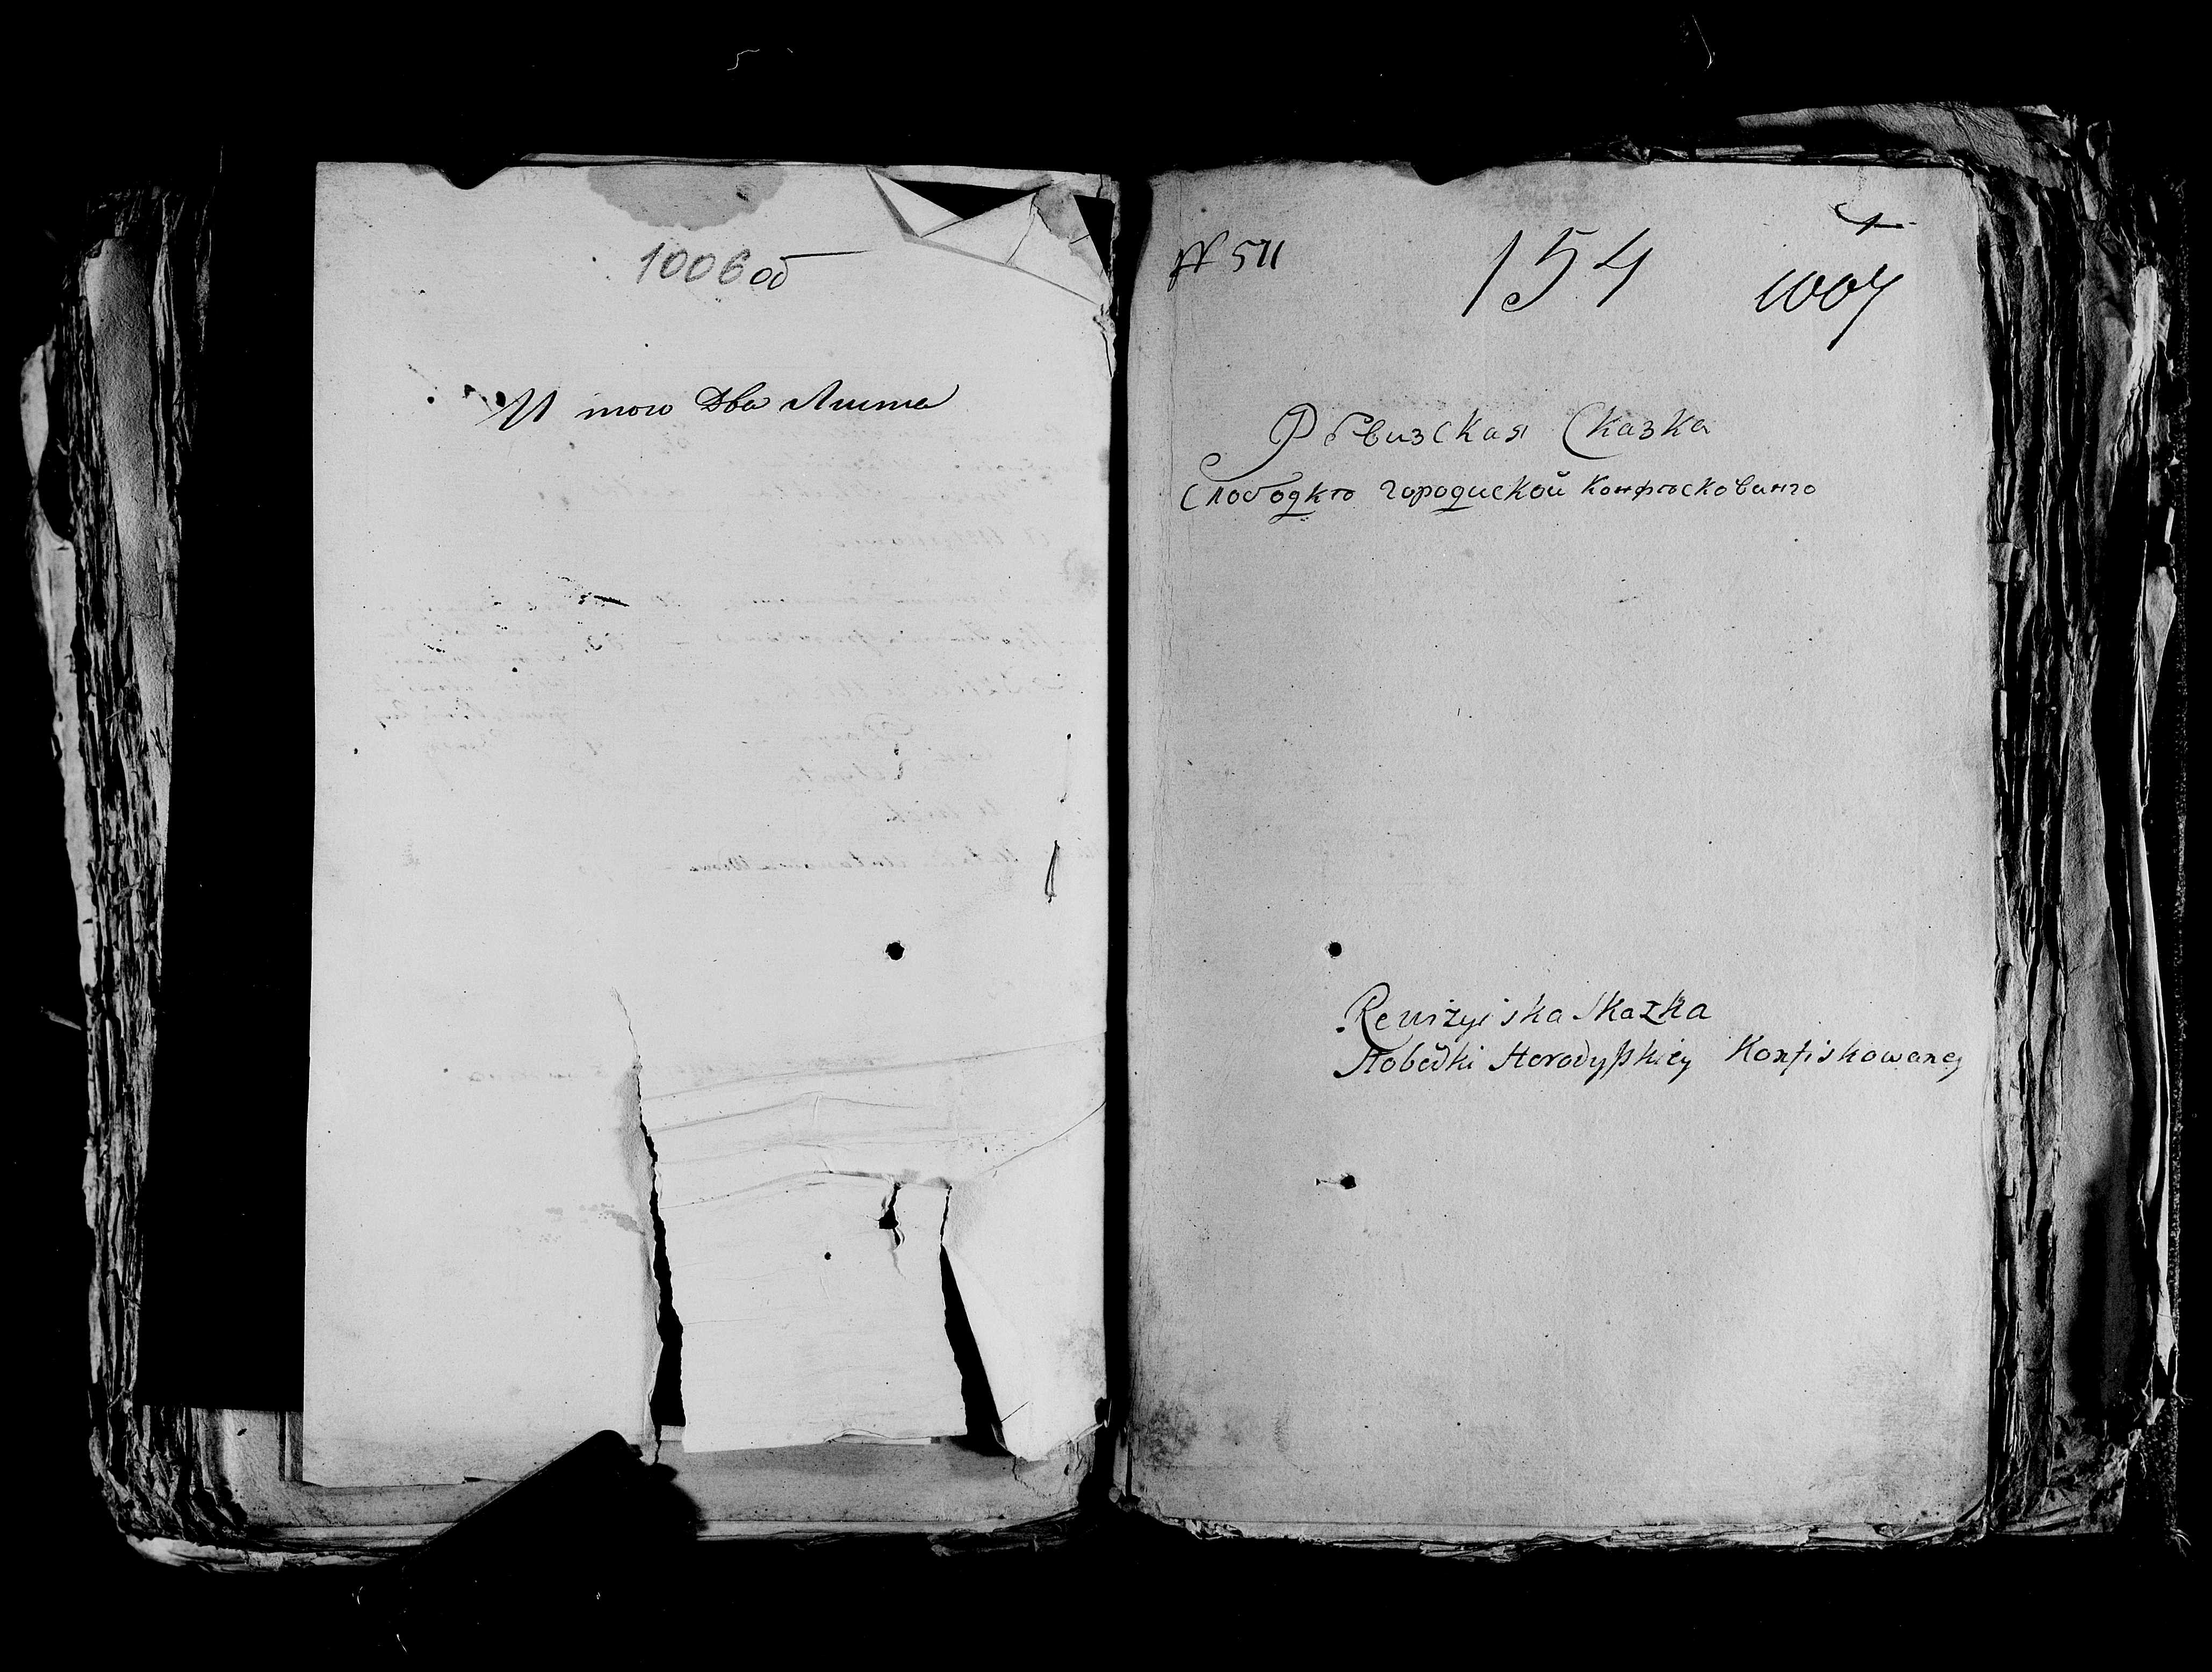 1006 об
И того два Листа
№ 511
154
1007
Рѣвизская Сказка
Слободкѣ Городиской Конфѣсковангo
Rewizyiska Skazka
Slobodki Horodyskiey Konfiskowaney